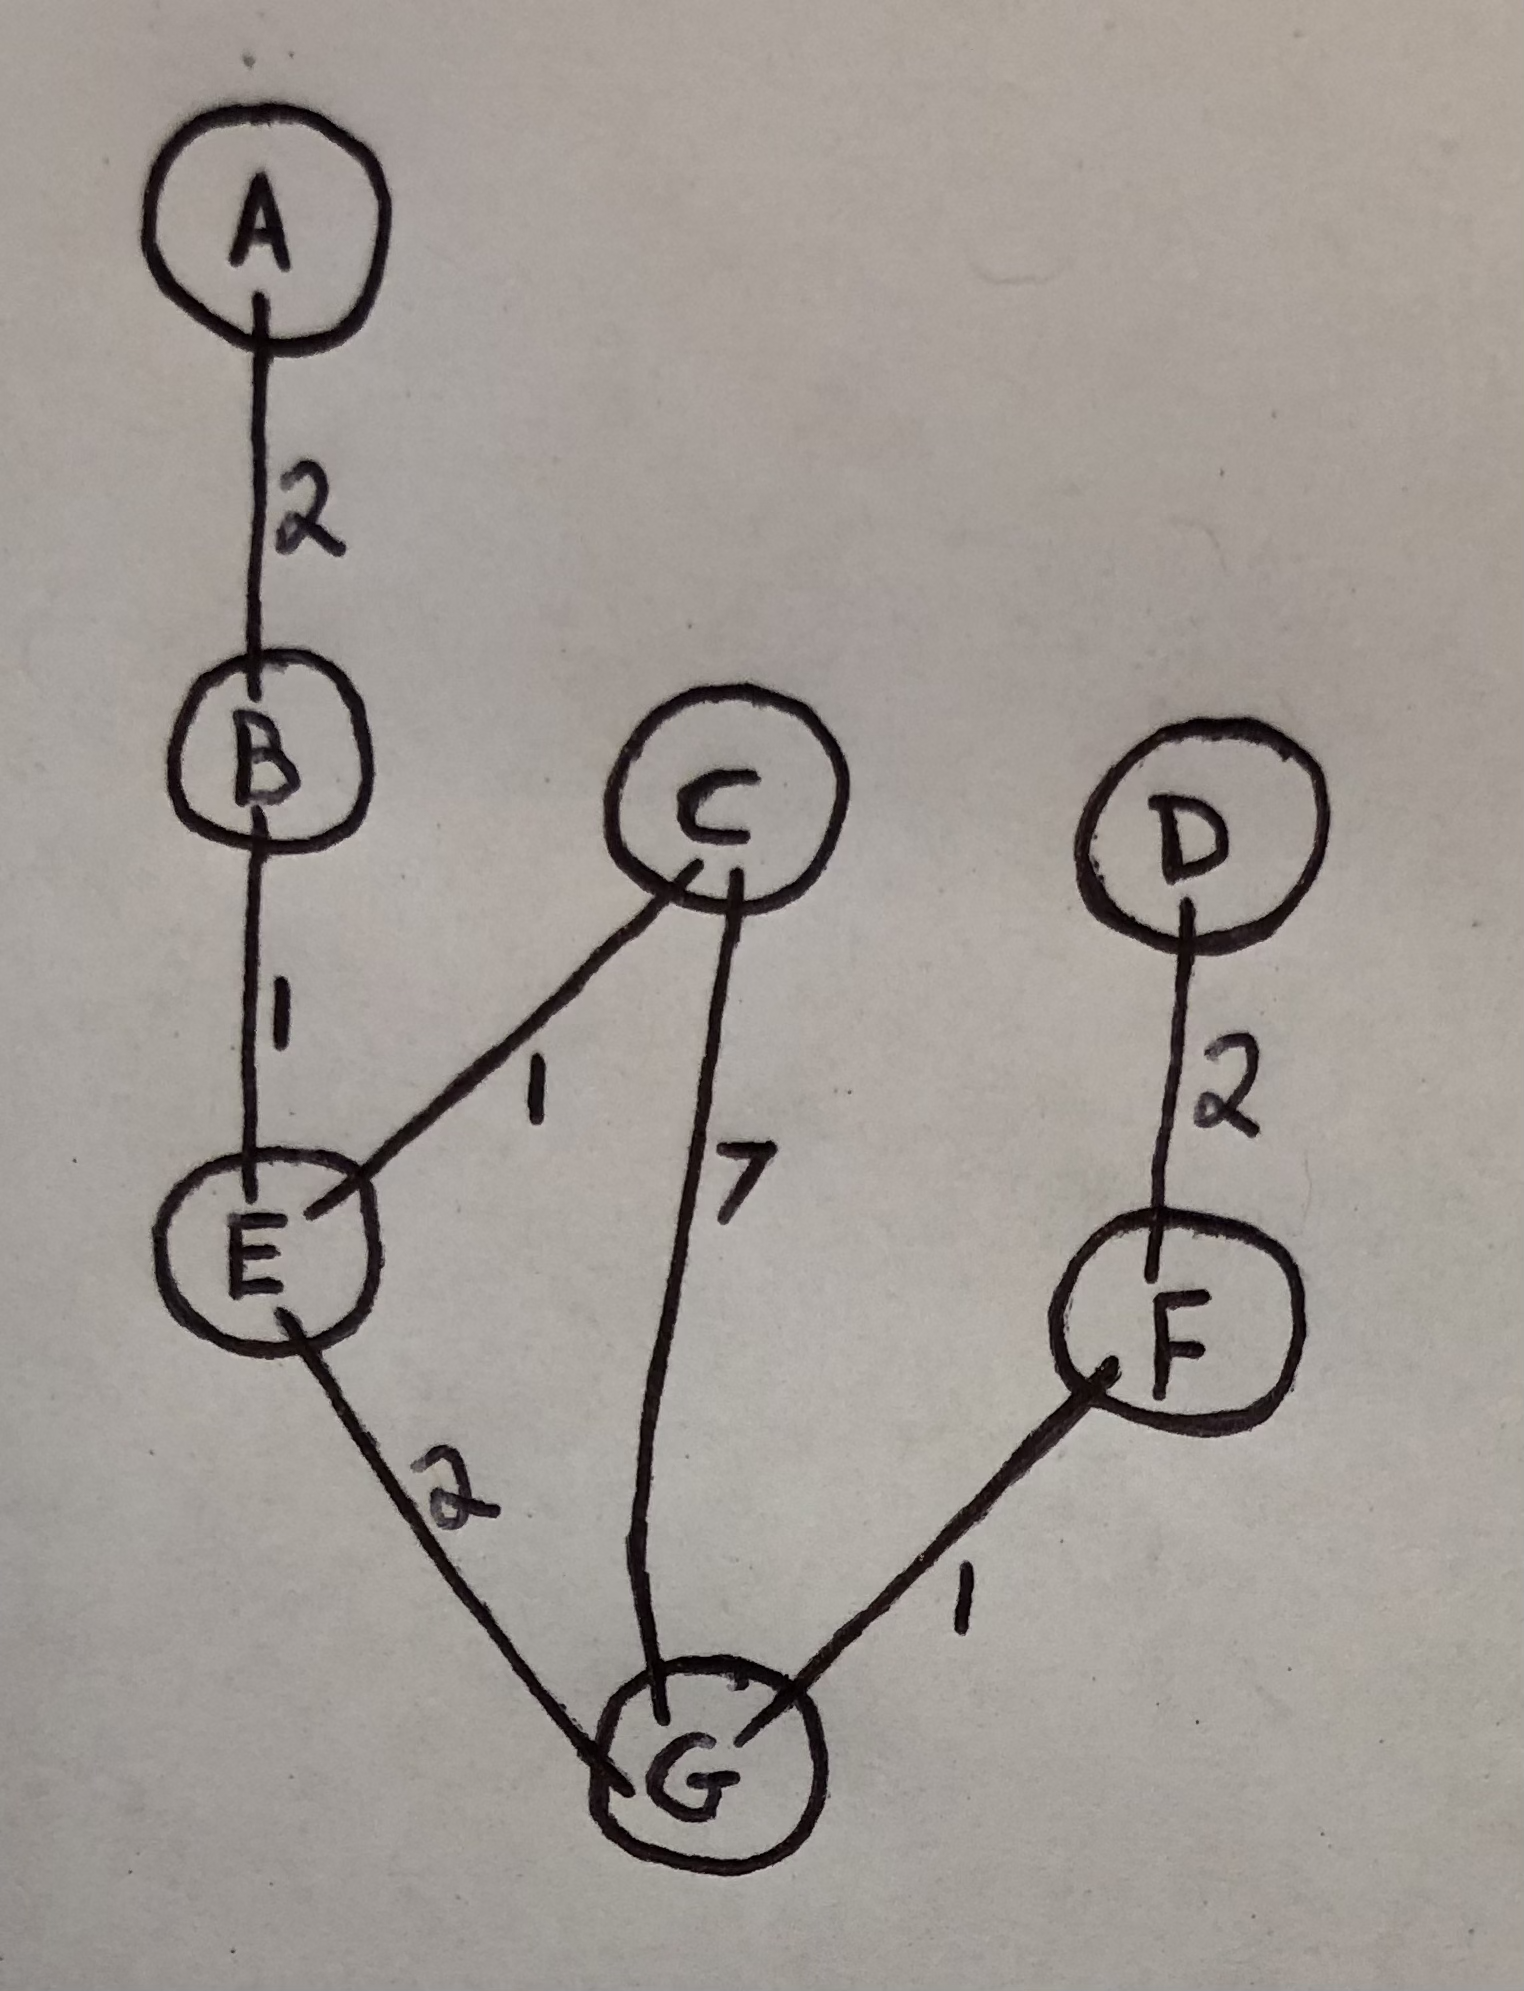 A
2
B
C
D
1
1
2
7
E
F
2
1
G